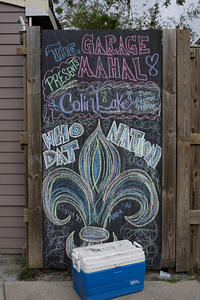 THE GARAGE
PRESENTS MAHAL
Colin Lake
WHO DAT NATION